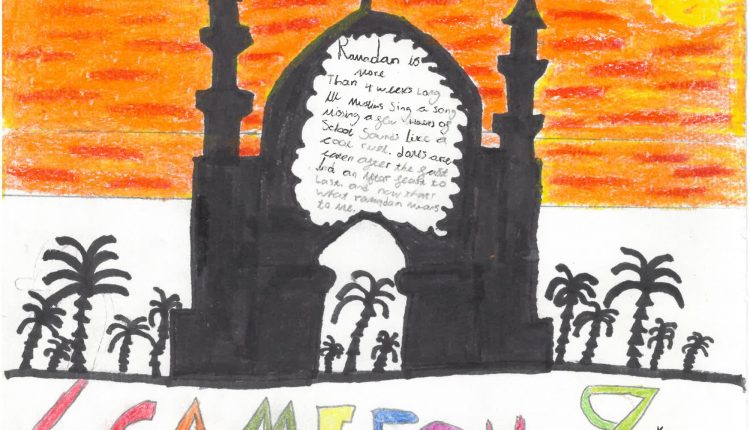 Ramadan is
more
Than 4 weeks long
All Muslims Sing a song
Missing a few Hours of
School Sounds Like a
cool rule. dates are
eaten after the fast
And an Iftar feast to
Last. and now that
what ramadan means
to me.
CAMERON